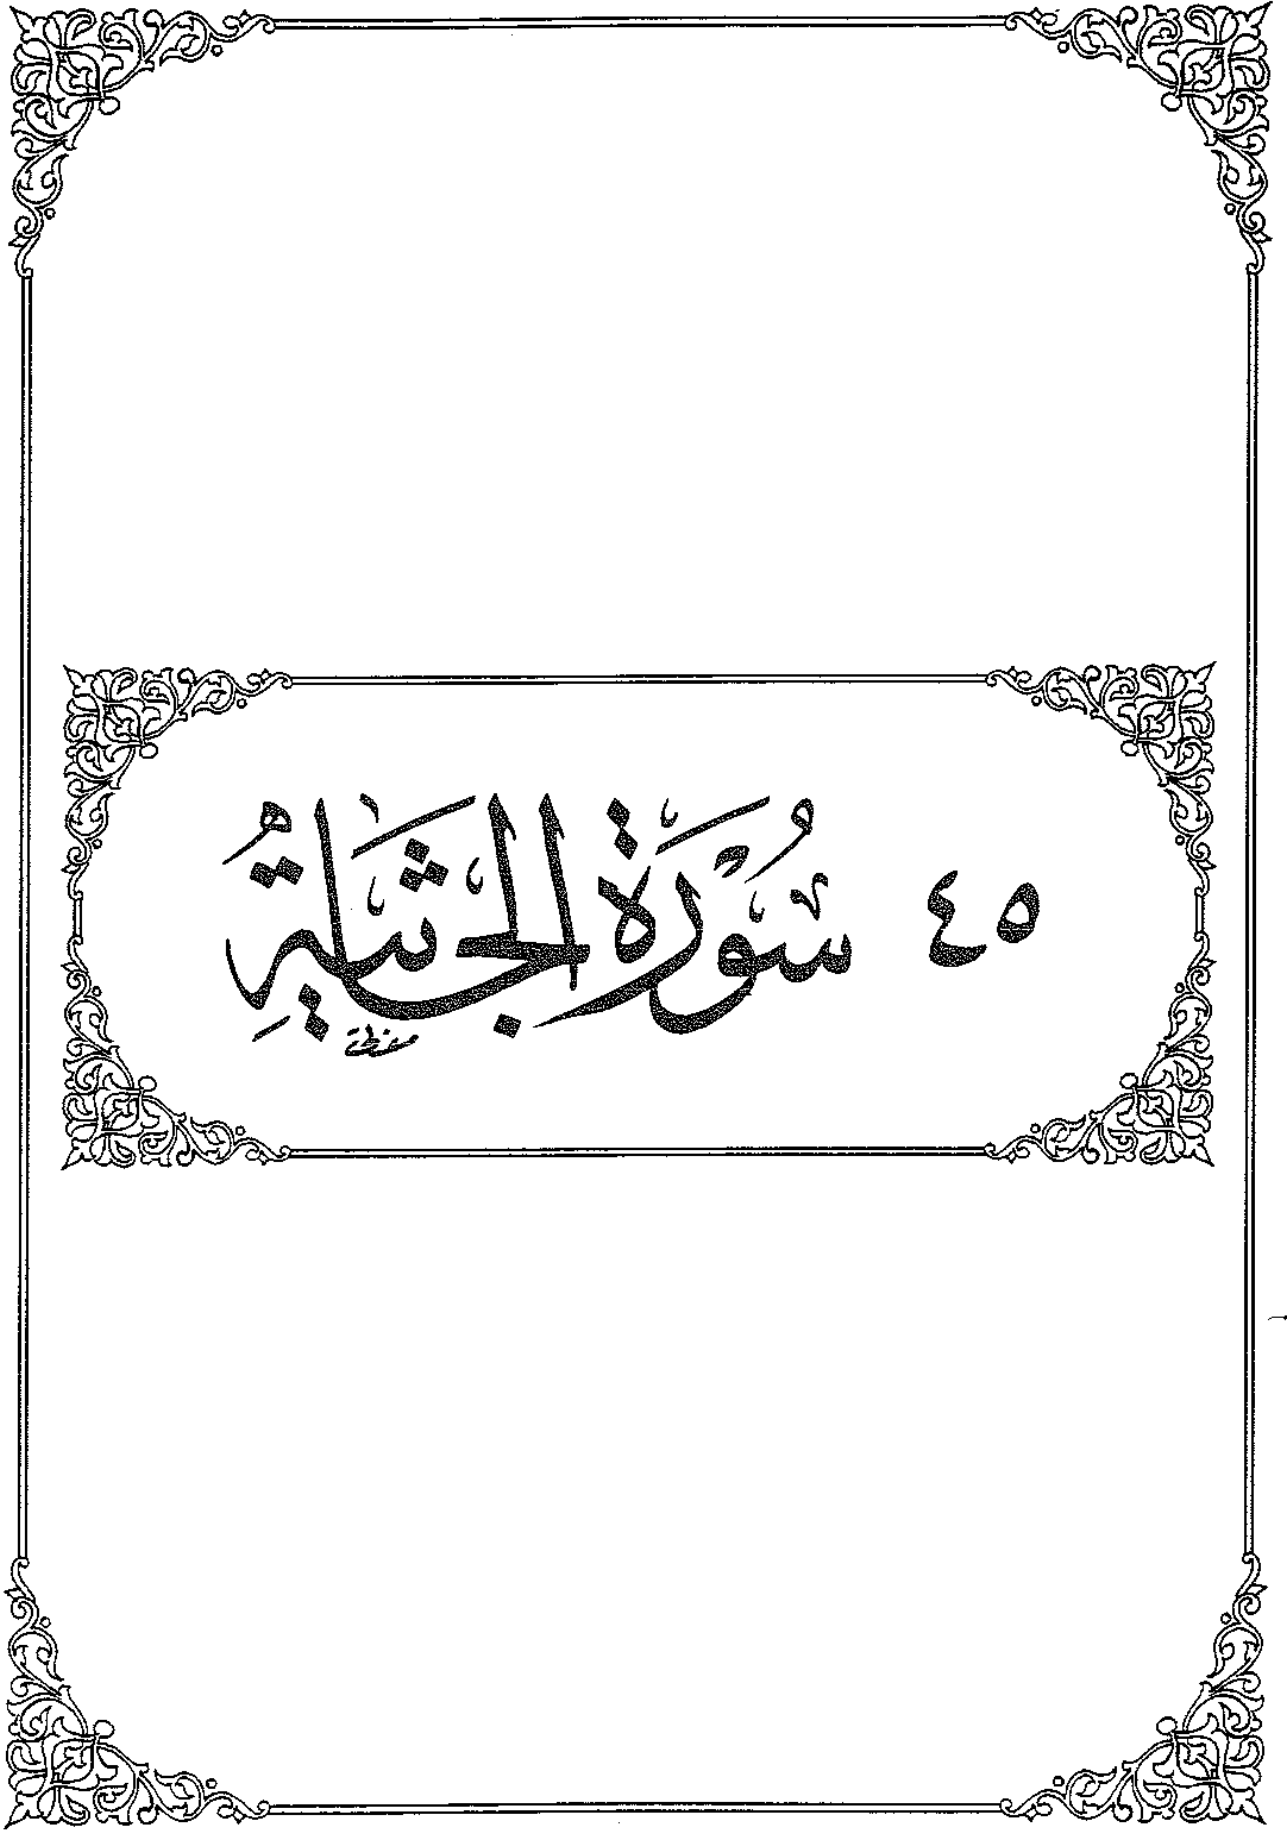 ٤٥ سُورَةُ الجَاثِيَةِ